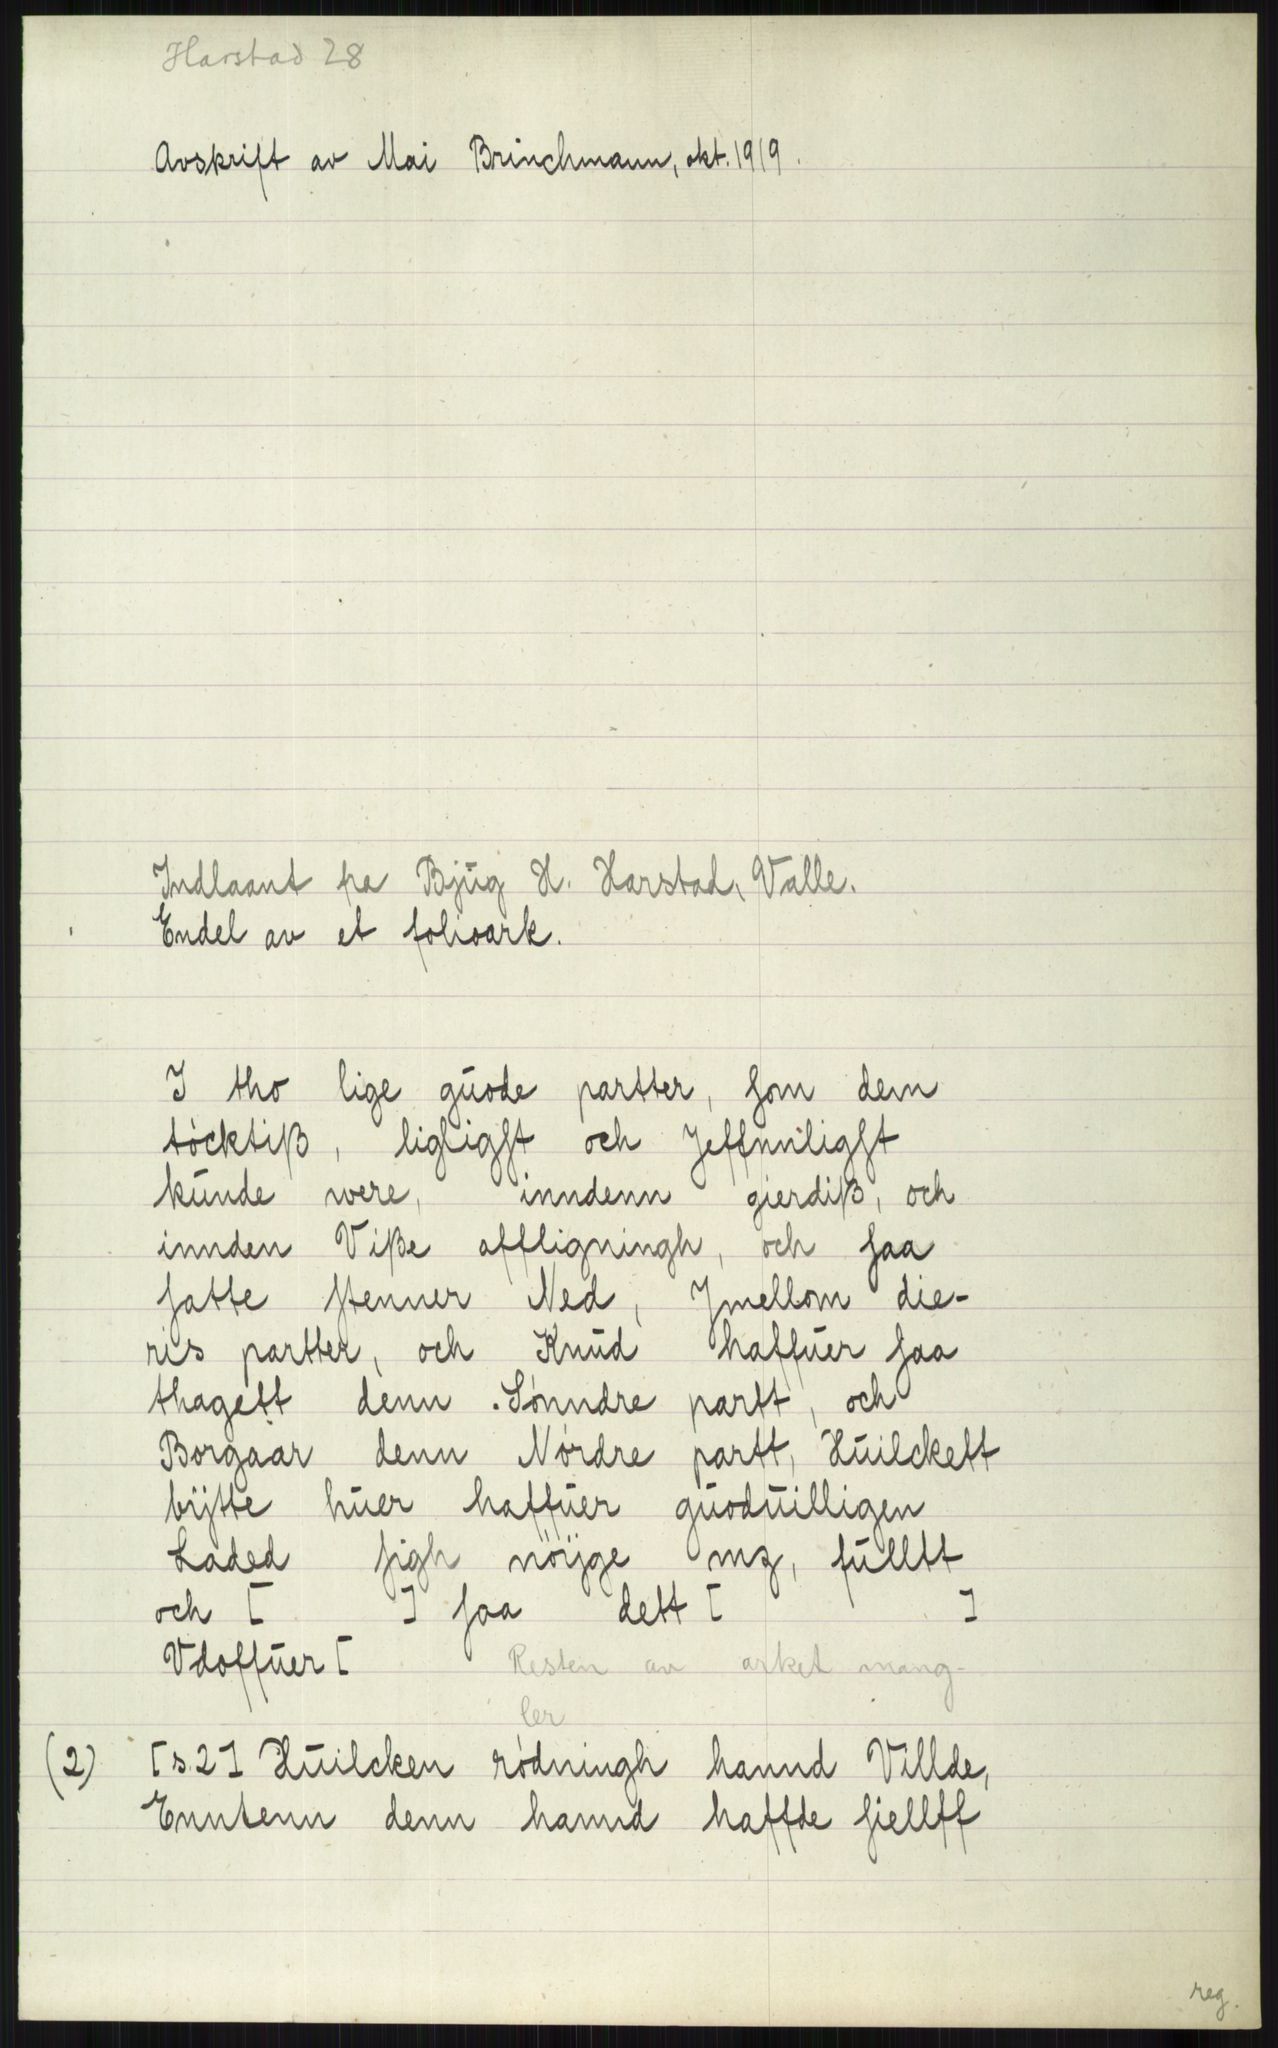 Harstad 28
Avskrift av Mai Brinchmann, okt. 1919.
Indlaant fra Bjug H. Harstad, Valle.
Endel av et folioark.
I tho lige guode partter, som dem
töcktiß, ligligst och Jeffnnligst
kunde were, inndenn gierdiß, och
innden Viße affligningh, och saa
satte stenner Ned, Jmellom die-
ris partter, och Knud haffuer saa
thagett denn Sönndre partt, och
Borgaar denn Nordre partt, Huilckett
bijtte huer haffuer guoduilligen
Laded sigh nöijge mz, fulltt
och [ ] saa dett [ ]
Vdoffuer [ Resten av arket mang-
ler
(2) [s. 2] Huilcken rödningh hannd Villde,
Enntenn denn hannd haffde siellff
reg.